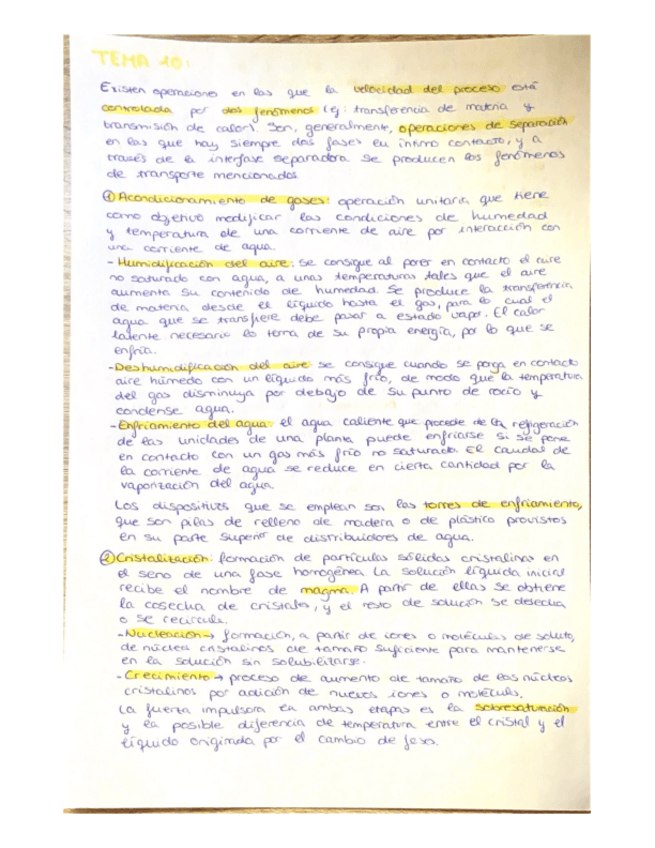 TEMA 10:
Existen operaciones en las que la velocidad del proceso está
controlada por dos fenómenos (ej: transferencia de materia y
transmisión de calor). Son, generalmente, operaciones de separación
en las que hay siempre dos fases en íntimo contacto, y a
través de la interfase separadora se producen los fenómenos
de transporte mencionados
① Acondicionamiento de gases: operación unitaria que tiene
como objetivo modificar las condiciones de humedad
y temperatura de una corriente de aire por interacción con
una corriente de agua.
- Humidificación del aire: se consigue al poner en contacto el aire
no saturado con agua, a unas temperaturas tales que el aire
aumenta su contenido de humedad. Se produce la transferencia
de materia desde el líquido hasta el gas, para lo cual el
agua que se transfiere debe pasar a estado vapor. El calor
latente necesario lo toma de su propia energía, por lo que se
enfría.
- Deshumidificación del aire: se consigue cuando se ponga en contacto
aire húmedo con un líquido más frío, de modo que la temperatura
del gas disminuya por debajo de su punto de rocío y
condense agua.
- Enfriamiento del agua: el agua caliente que procede de la refrigeración
de las unidades de una planta puede enfriarse si se pone
en contacto con un gas más frío no saturado. El caudal de
la corriente de agua se reduce en cierta cantidad por la
vaporización del agua.
Los dispositivos que se emplean son las torres de enfriamiento,
que son pilas de relleno de madera o de plástico provistos
en su parte superior de distribuidores de agua.
② Cristalización: formación de partículas sólidas cristalinas en
el seno de una fase homogénea. La solución líquida inicial
recibe el nombre de magma. A partir de ellas se obtiene
la cosecha de cristales, y el resto de solución se desecha
o se recircula.
- Nucleación → formación, a partir de iones o moléculas de soluto,
de núcleos cristalinos de tamaño suficiente para mantenerse
en la solución sin solubilizarse.
- Crecimiento → proceso de aumento de tamaño de los núcleos
cristalinos por adición de nuevos iones o moléculas.
La fuerza impulsora en ambas etapas es la sobresaturación
y la posible diferencia de temperatura entre el cristal y el
líquido originada por el cambio de fase.